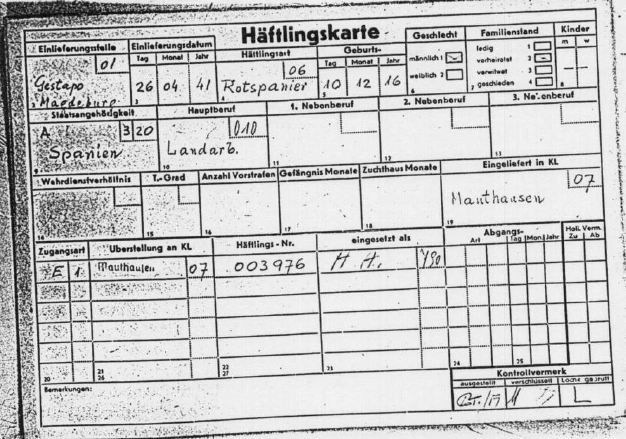 Häftlingskarte
Einlieferungsstelle
01
Gestapo
Magdeburg
Einlieferungsdatum
Tag Monat Jahr
26 04 41
3
Häftlingsart
06
Rotspanier
4
Geburts-
Tag Monat Jahr
10 12 16
5
Geschlecht
männlich 1
weiblich 2
6
Familienstand
ledig 1
verheiratet 2
verwitwet 3
geschieden 4
7
Kinder
m w
8
Staatsangehörigkeit
3 20
Spanien
9
Hauptberuf
010
Landarb.
10
1. Nebenberuf
11
2. Nebenberuf
12
3. Nebenberuf
13
Wehrdienstverhältnis
14
T.-Grad
15
Anzahl Vorstrafen
16
Gefängnis Monate
17
Zuchthaus Monate
18
Eingeliefert in KL
07
Mauthausen
19
Zugangsart Überstellung an KL Häftlings-Nr. eingesetzt als
Abgangs-
Art Tag Mon. Jahr
Holl. Verm.
Zu Ab
E 1 Mauthausen 07 003976 H. A. 490
20 21 22 23 24 25
26 27
Bemerkungen:
Kontrollvermerk
ausgestellt verschlüsselt Lochk. geprüft